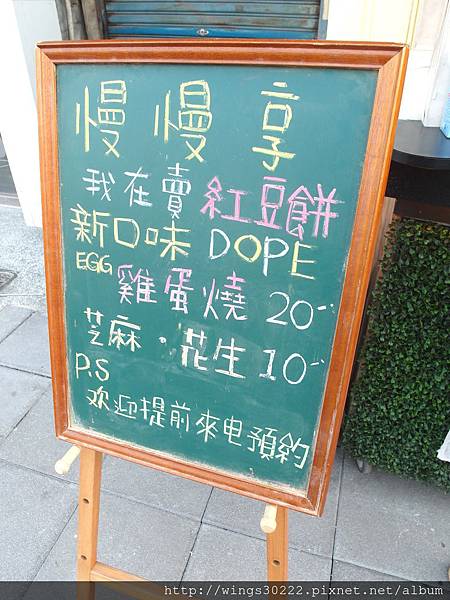 慢慢享
我在賣紅豆餅
新口味 DOPE
EGG 雞蛋燒 20-
芝麻．花生 10-
P.S
欢迎提前來电預約
http://wings30222.pixnet.net/album